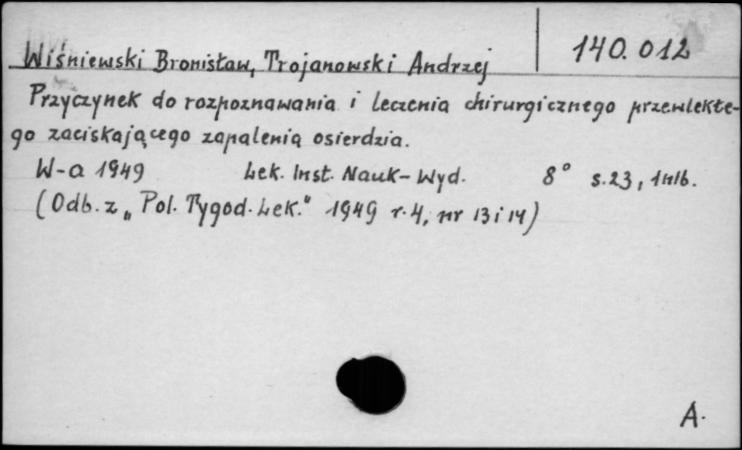 Wiśniewski Bronisław, Trojanowski Andrzej 140.012
Przyczynek do rozpoznawania i leczenia chirurgicznego przewlekłe-
go zaciskającego zapalenia osierdzia.
W-a 1949 Lek. Inst. Nauk-Wyd. 8° s.23, 1nlb.
(Odb. z „Pol. Tygod. Lek." 1949 r.4, nr 13 i 14)
A.